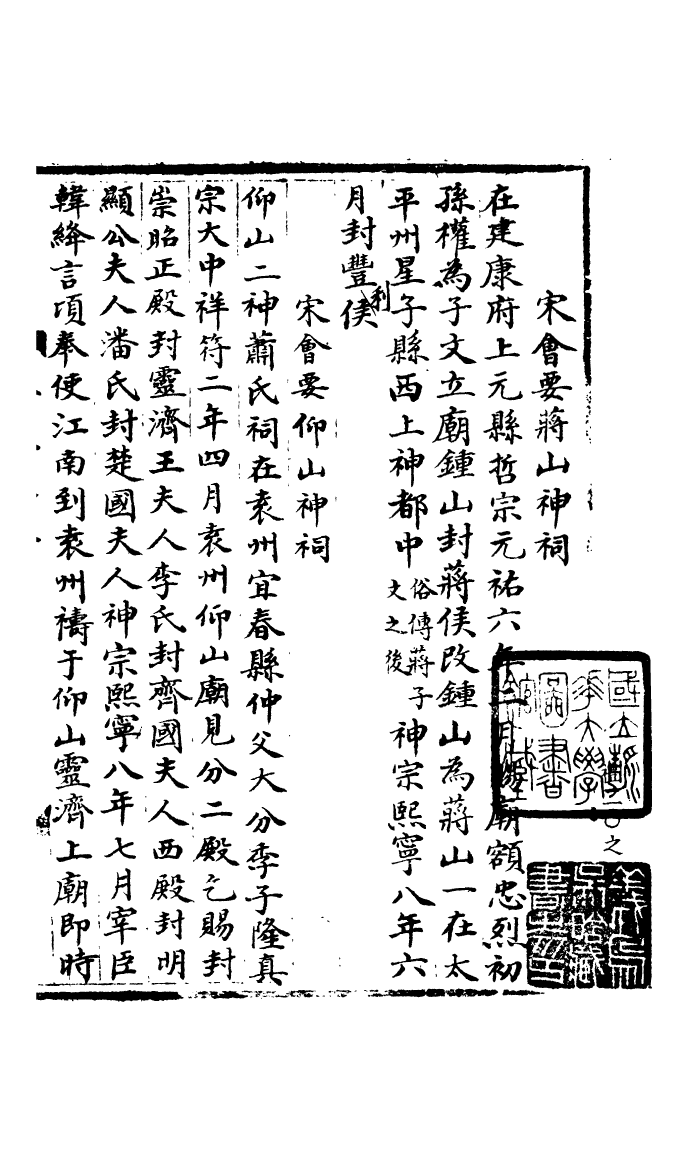 宋會要蔣山神祠
在建康府上元縣哲宗元祐六年二月賜廟額忠烈初
孫權為子文立廟鍾山封蔣侯改鍾山為蔣山一在太
平州星子縣西上神都中俗傳蔣子文之後神宗熙寧八年六
月封豐利侯
宋會要仰山神祠
仰山二神蕭氏祠在袁州宜春縣仲父大分季子隆真
宗大中祥符二年四月袁州仰山廟見分二殿乞賜封
崇昭正殿封靈濟王夫人李氏封齊國夫人西殿封明
顯公夫人潘氏封楚國夫人神宗熙寧八年七月宰臣
韓絳言頃奉使江南到袁州禱于仰山靈濟上廟即時
國立
大學
圖書
之